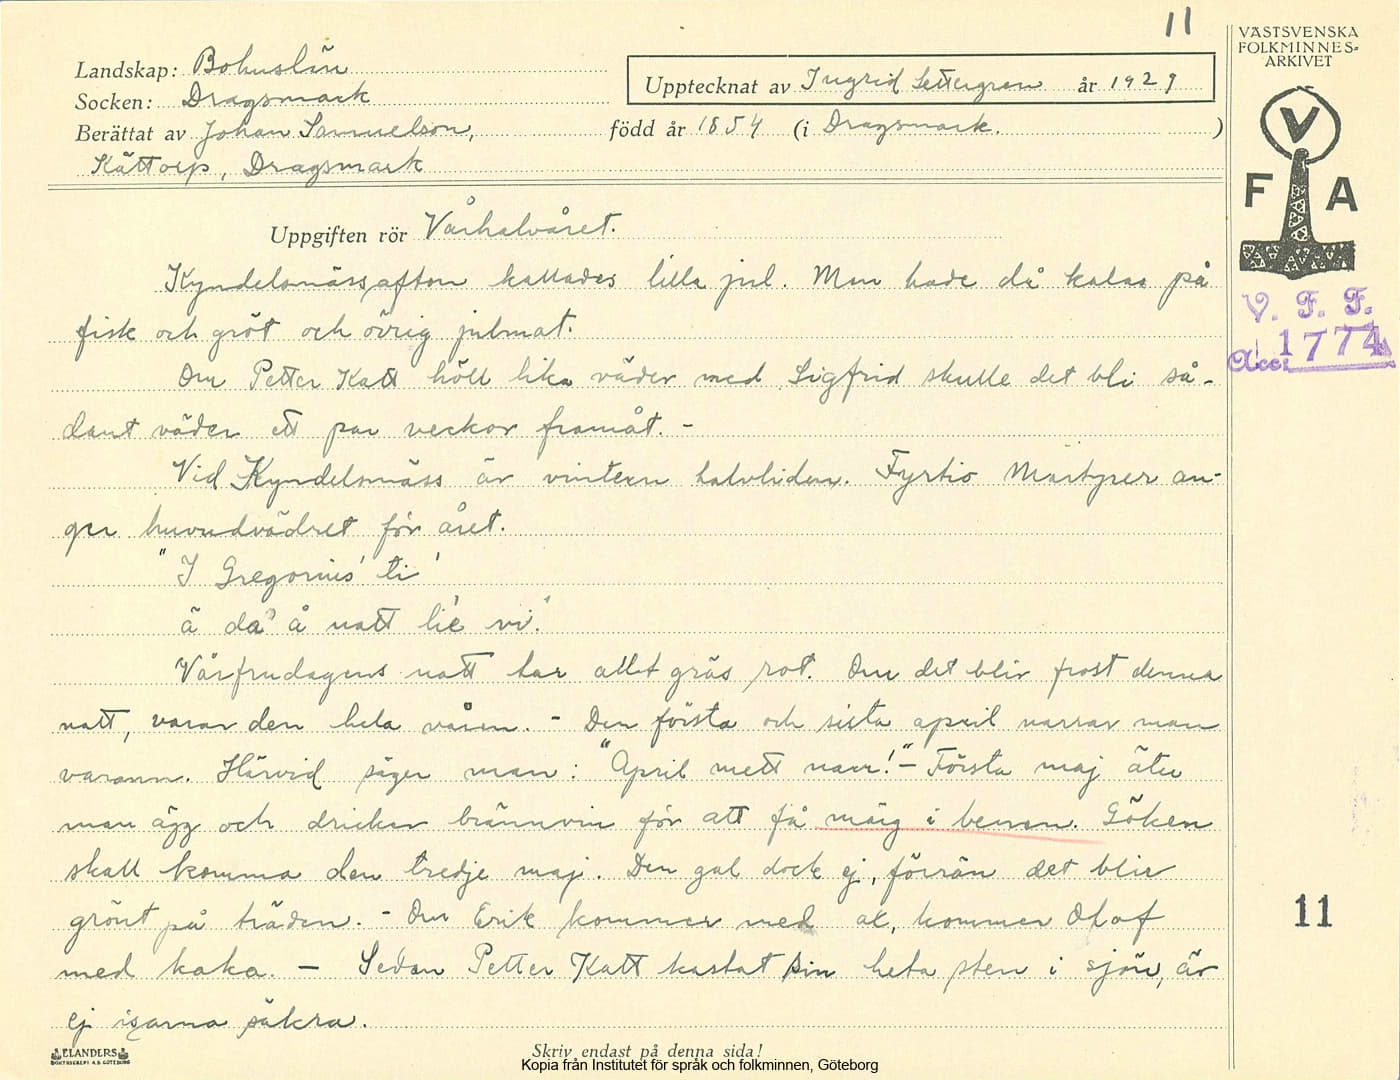 11
VÄSTSVENSKA
FOLKMINNES-
ARKIVET
Landskap: Bohuslän
Upptecknat av Ingrid Settergren år 1929
Socken: Dragsmark
Berättat av Johan Samuelson, född år 1854 (i Dragsmark. )
Kättorp, Dragsmark
V
F A
Uppgiften rör Vårhalvåret.
Kyndelsmässafton kallades lilla jul. Man hade då kalas på
fisk och gröt och övrig julmat.
V. F. F.
Acc: 1774
Om Petter Katt höll lika väder med Sigfrid skulle det bli så-
dant väder ett par veckor framåt. -
Vid Kyndelsmäss är vintern halvliden. Fyrtio Märtyrer an-
ger huvudvädret för året.
"I Gregorius' ti'
ä da' å natt lie vi'."
Vårfrudagens natt tar allt gräs rot. Om det blir frost denna
natt, varar den hela våren. - Den första och sista april narrar man
varann. Härvid säger man: "April mett narr!" - Första maj äter
man ägg och dricker brännvin för att få märg i benen. Göken
skall komma den tredje maj. Den gal dock ej, förrän det blir
grönt på träden. - Om Erik kommer med ax, kommer Olof
11
med kaka. - Sedan Petter Katt kastat sin heta sten i sjön, är
ej isarna säkra.
ELANDERS
BOKTRYCKERI A.B. GÖTEBORG
Skriv endast på denna sida!
Kopia från Institutet för språk och folkminnen, Göteborg